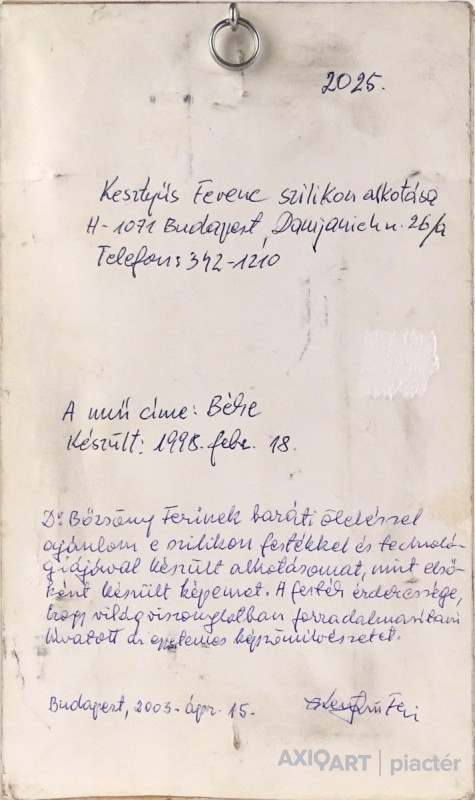 2025.
Kesztyűs Ferenc szilikon alkotása
H-1071 Budapest, Damjanich u. 26/a
Telefon: 342-1210
A mű címe: Béke
Készült: 1998. febr. 18.
Dr Börzsöny Ferinek baráti öleléssel
ajánlom e szilikon festékkel és technoló-
giájával készült alkotásomat, mint első-
ként készült képemet. A festék érdekessége,
hogy világviszonylatban forradalmasítani
hivatott az egyetemes képzőművészetet.
Budapest, 2003. ápr. 15.
Kesztyűs Feri
AXIOART | piactér